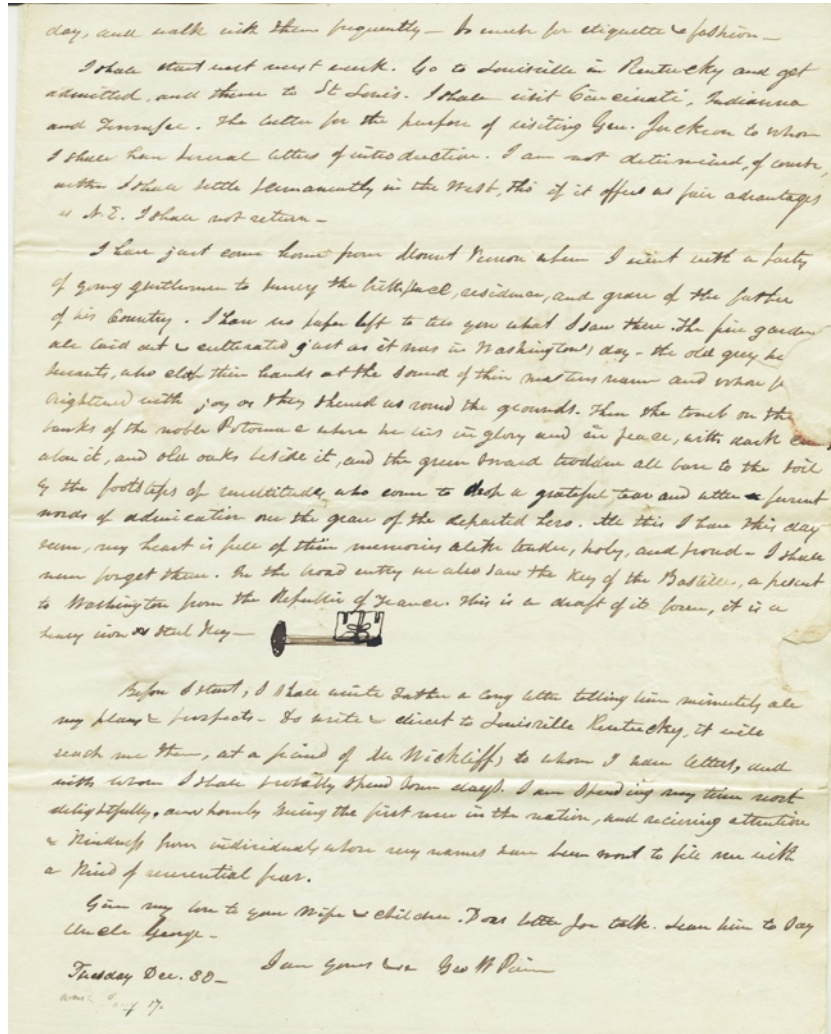 day, and walk with them frequently — So much for etiquette & fashion —
I shall start west next week. Go to Louisville in Kentucky and get
admitted, and thence to St Louis. I shall visit Cincinati, Indianna
and Tennessee. The latter for the purpose of visiting Gen. Jackson to whom
I shall have several letters of introduction. I am not determined, of course,
whether I shall settle permanently in the West, tho' if it offers as fair advantages
as N.E. I shall not return —
I have just come home from Mount Vernon where I went with a party
of young gentlemen to survey the birthplace, residence, and grave of the father
of his Country. I have no paper left to tell you what I saw there. The fine garden
all laid out & cultivated just as it was in Washington's day — the old grey
servants, who clap their hands at the sound of their masters name and whose
brightened with joy as they showed us round the grounds. Then the tomb on the
banks of the noble Potomac where he lies in glory and in peace, with dark
above it, and old oaks beside it, and the green sward trodden all bare to the soil
by the footsteps of multitudes, who come to drop a grateful tear and utter a fervent
words of admiration over the grave of the departed hero. All this I have this day
seen, my heart is full of these memories alike tender, holy, and proud — I shall
never forget them. In the broad entry we also saw the Key of the Bastille, a present
to Washington from the Republic of France. This is a draft of its form, it is a
heavy iron or steel Key —
Before I start, I shall write Father a long letter telling him minutely all
my plans & prospects — Do write & direct to Louisville Kentucky, it will
reach me there, at a friend of Mr Wickliff's to whom I have letters, and
with whom I shall probably spend some days. I am spending my time most
delightfully, and hourly seeing the first men in the nation, and recieving attention
& Kindness from individuals whose very names have been wont to fill me with
a Kind of reverential fear.
Give my love to your Wife & children. Does little Joe talk. Learn him to say
Uncle George —
I am yours Geo W
Tuesday Dec. 30 —
17.